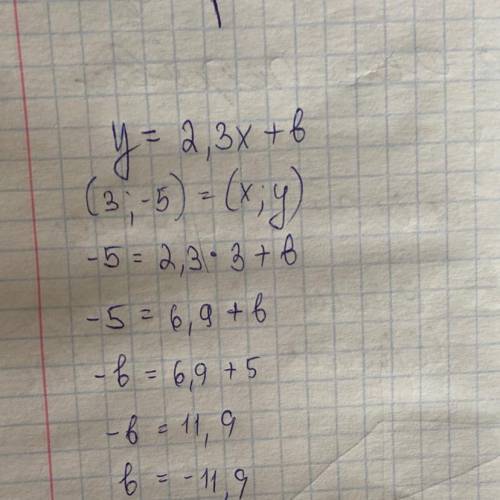 y = 2,3x + b
(3; -5) = (x; y)
-5 = 2,3 · 3 + b
-5 = 6,9 + b
-b = 6,9 + 5
-b = 11,9
b = -11,9